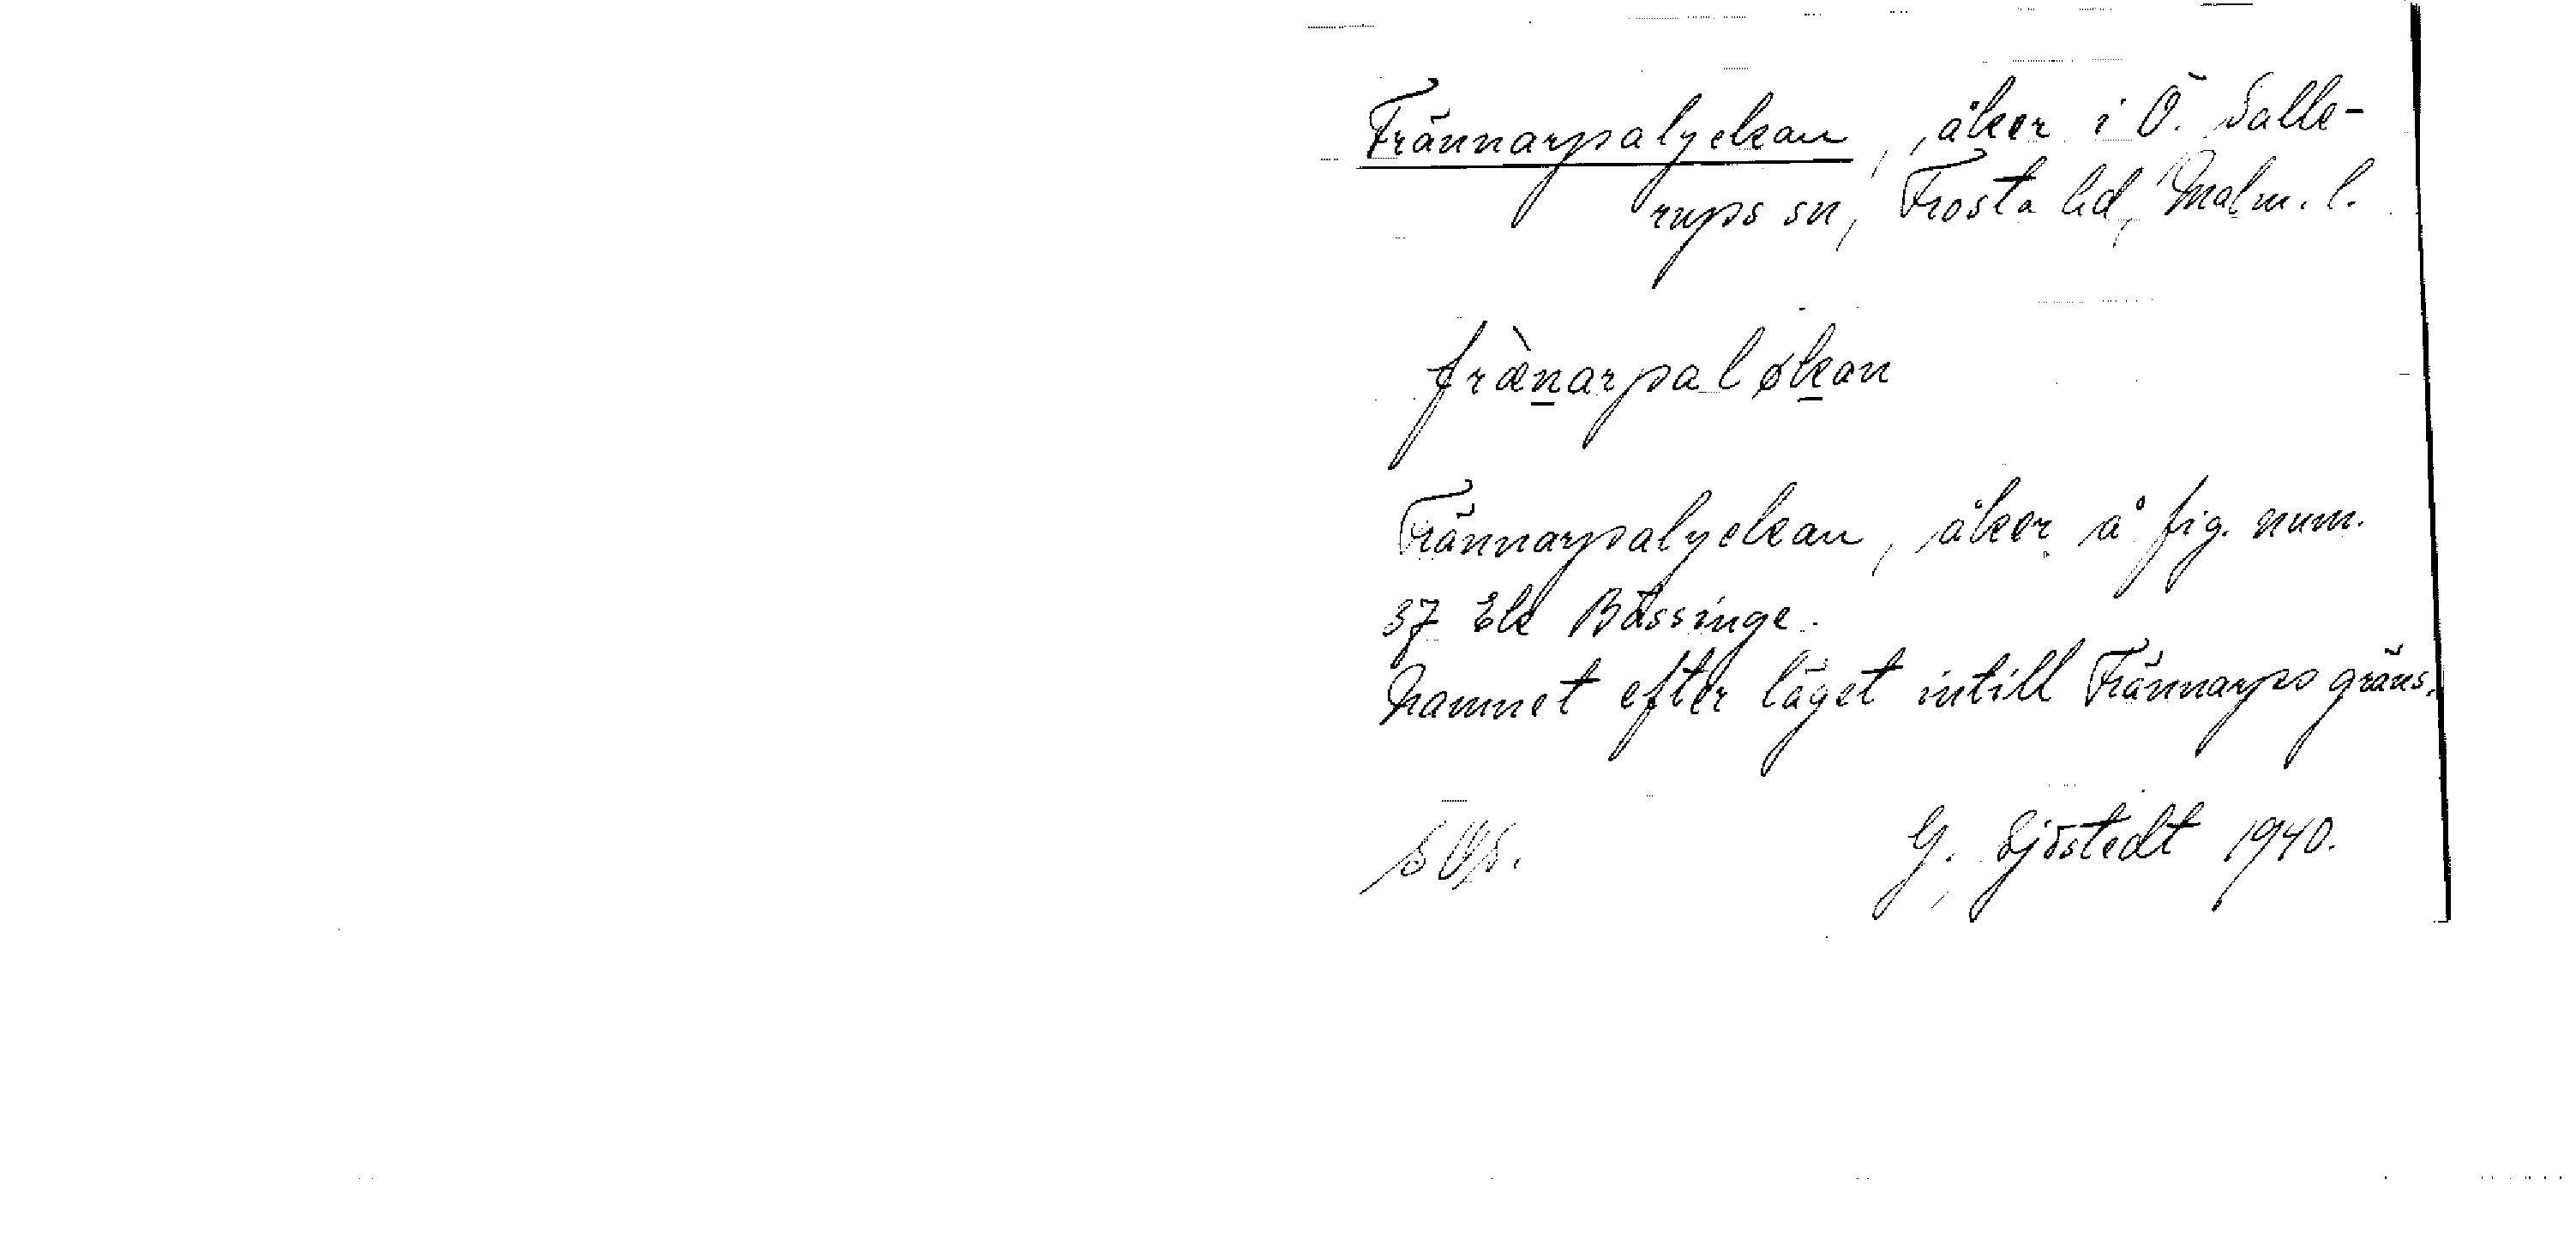 Frännarpalyckan, åker i Ö. Salle-
rups sn, Frosta hd, Malm. l.
fræ̀n̲arpaløk̲an
Frännarpalyckan, åker å fig. num.
37 Ek Bössinge.
Namnet efter läget intill Frännarps gräns.
G. Sjöstedt 1940.